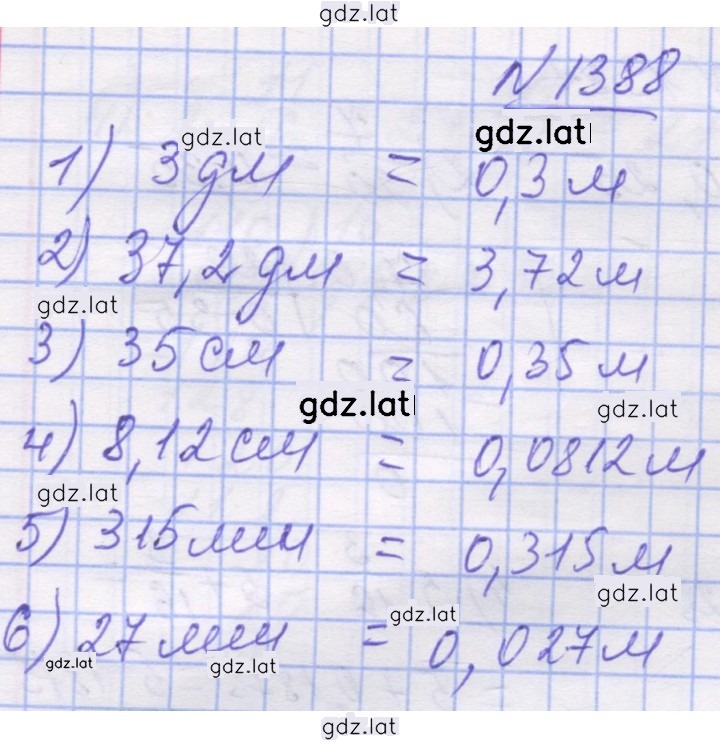 gdz.lat
N 1388
gdz.lat gdz.lat
1) 3 дм = 0,3 м
2) 37,2 дм = 3,72 м
gdz.lat
3) 35 см = 0,35 м
gdz.lat gdz.lat
4) 8,12 см = 0,0812 м
gdz.lat
5) 315 мм = 0,315 м
gdz.lat
gdz.lat
6) 27 мм = 0,027 м
gdz.lat gdz.lat
gdz.lat